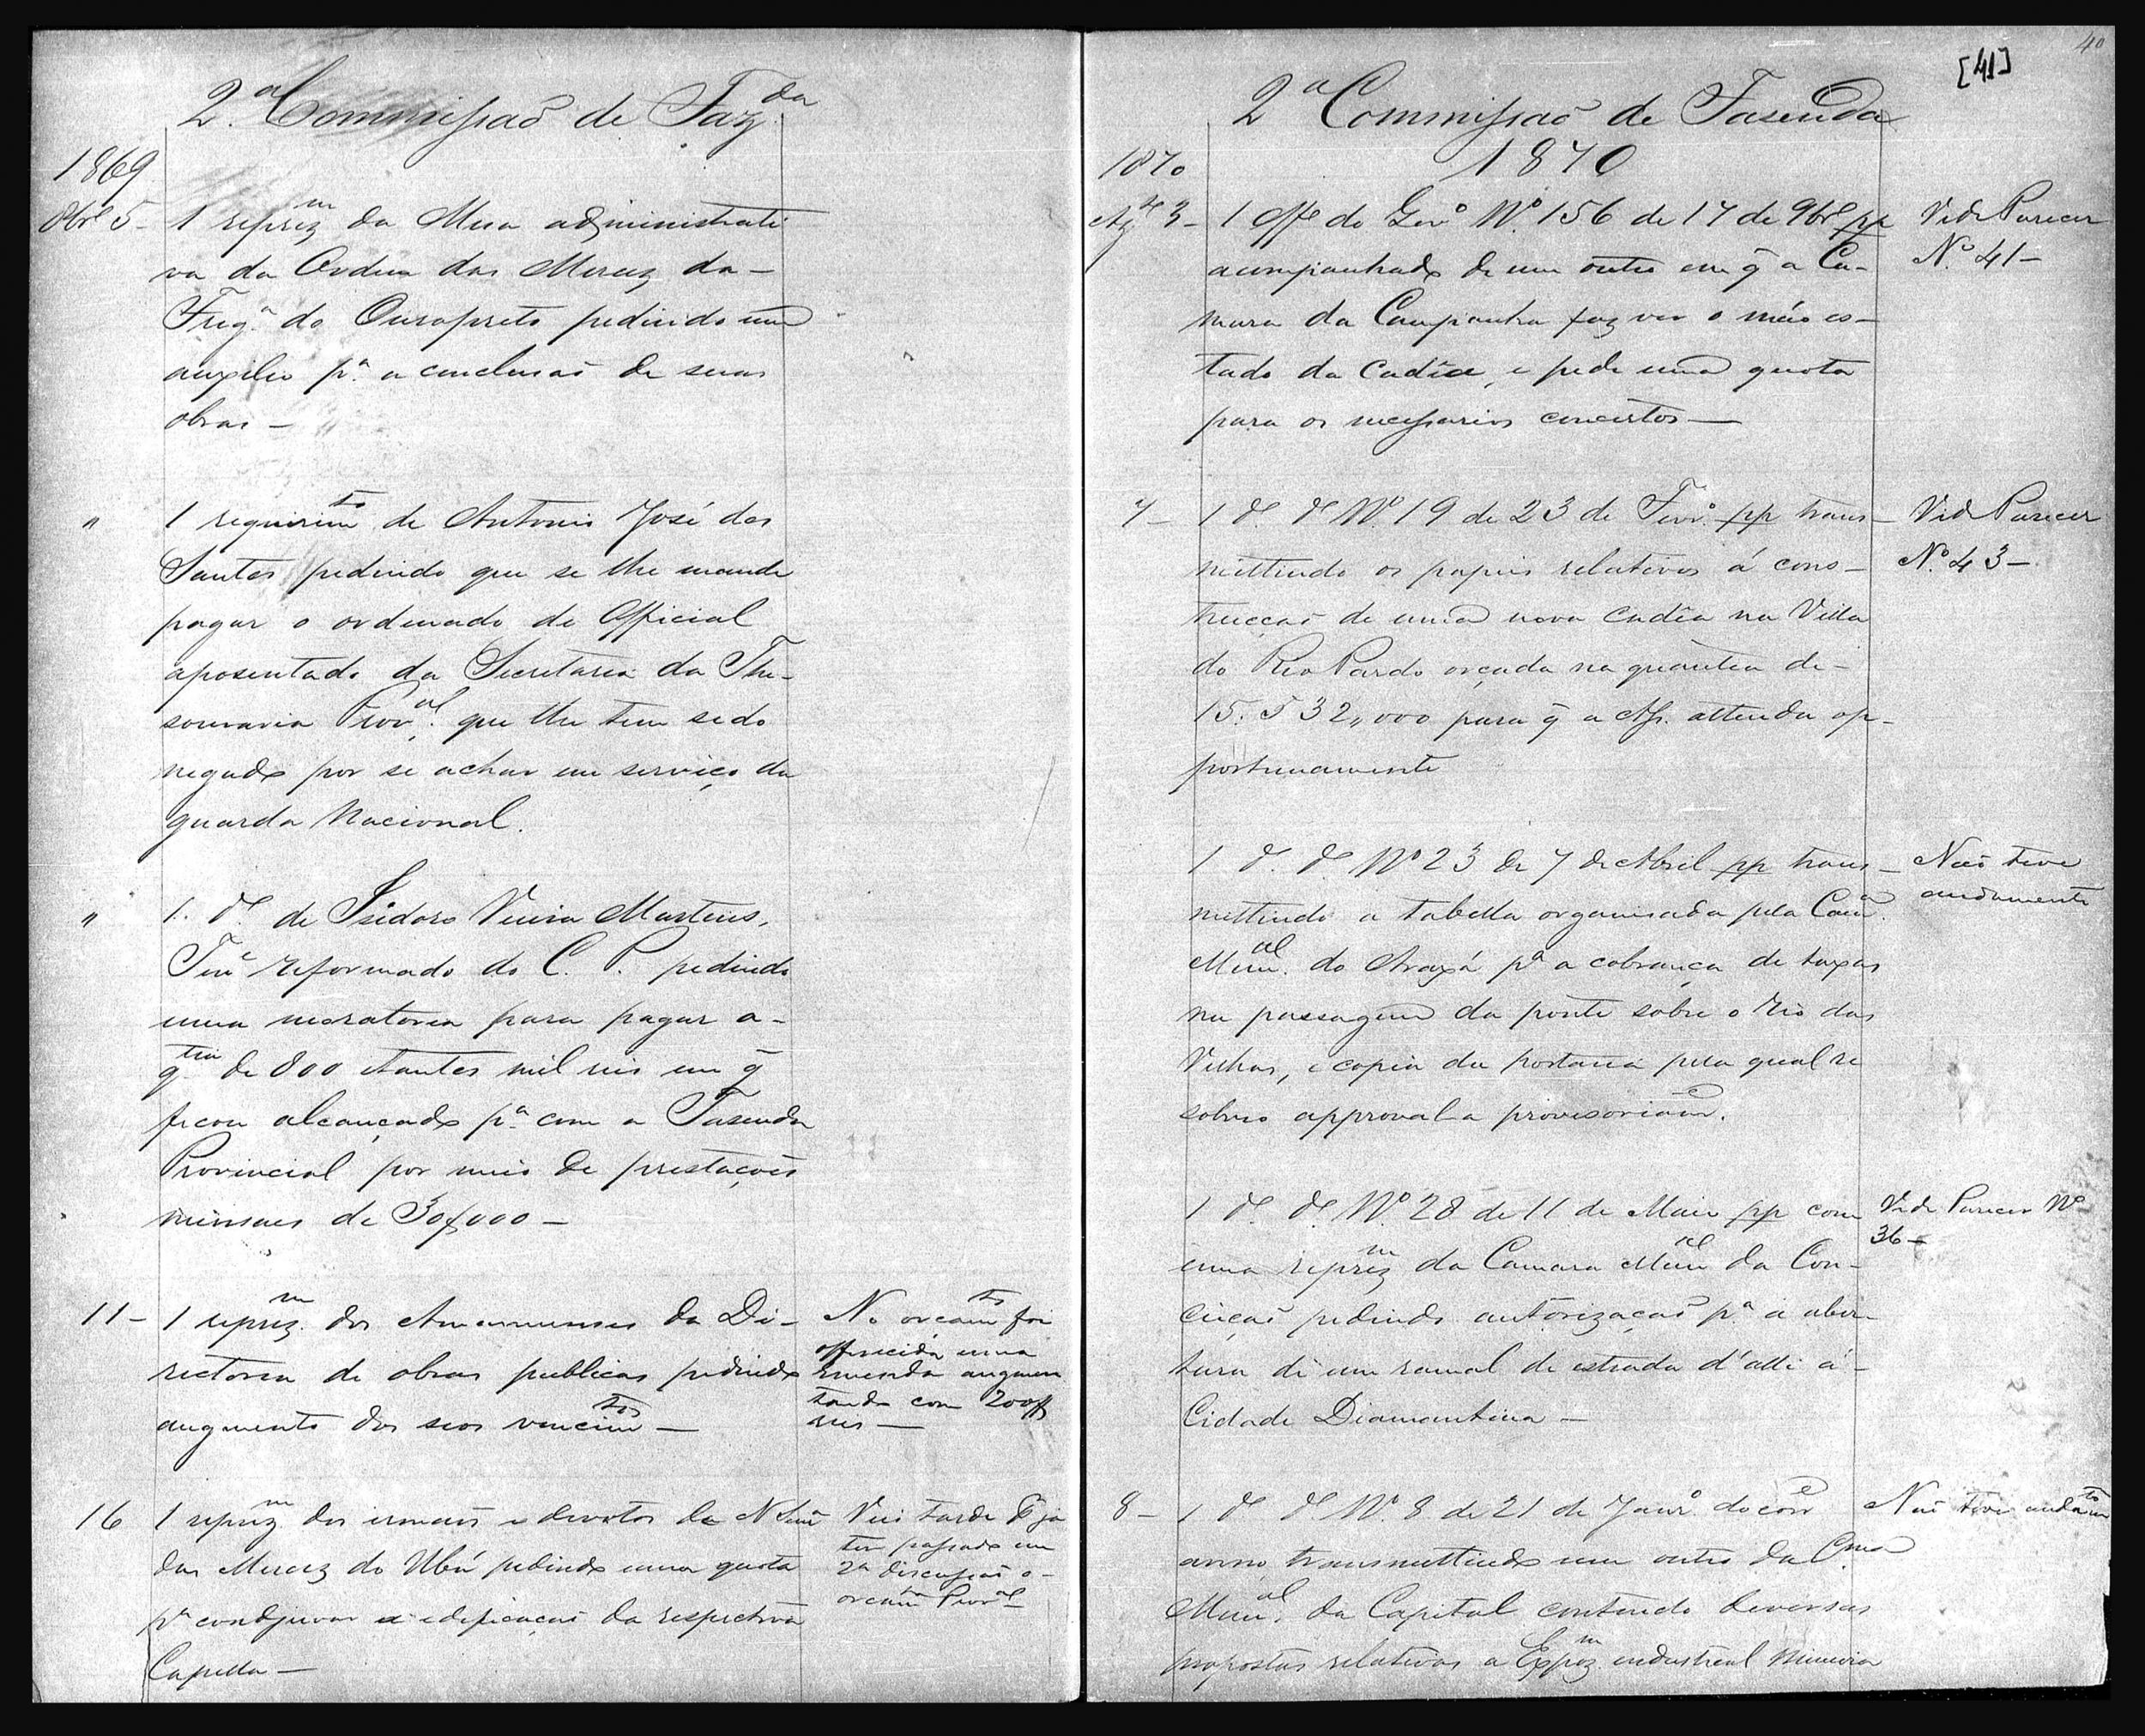 2.ª Commissaõ de Faz.da
1869
8br.e 5 - 1 reprez.m da Mesa administrati
va da Ordem das Mercez da -
Freg.ª do Ouropreto pedindo um
auxilio p.ª a conclusaõ de suas
obras -
" 1 requerim.to de Antonio José dos
Santos pedindo que se lhe mande
pagar o ordenado de Official
aposentado da Secretaria da The-
souraria Prov.al que lhe tem sido
negado por se achar em serviço da
guarda Nacional.
" 1. d.º de Isidoro Vieira Martins,
Ten.e reformado do C. P. pedindo
uma moratoria para pagar a -
q.tia de 800 e tantos mil reis em q̃
ficou alcançado p.ª com a Fasenda
Provincial por meio de prestações
mensaes de 30$000 -
11 - 1 reprez.m dos Amanuenses da Di-
rectoria de obras publicas pedindo
augmento dos seos vencim.tos -
No orcam.to foi
offerecida uma
emenda augmen
tando com 200$
reis -
16 1 reprez.m dos irmaõs e devotos de N Sen.ra
das Mercez do Ubá pedindo uma quota
p.ª coadjuvar a edificaçaõ da respectiva
Capella -
Veio tarde p.r já
ter passado em
2ª discussaõ o -
orcam.to Prov.al
[41]
40
2ª Commissaõ de Fasenda
1870
1870
Ag.to 3 - 1 Off.º do Gov.º N.º 156 de 17 de 9br.e pp
acompanhado de um outro em q̃ a Ca-
mara da Campanha faz ver o máo es-
tado da Cadêa, e pede uma quota
para os necessarios concertos -
Vide Parecer
N.º 41 -
7 - 1 d.º d.º N.º 19 de 23 de Fevr.º pp trans-
mittindo os papeis relativos á cons-
trucçaõ de uma nova cadêa na Villa
do Rio Pardo orçada na quantia de -
15:532,,000 para q̃ a Ass. attenda op-
portunamente
Vide Parecer
N.º 43 -
1 d.º d.º Nº 23 de 7 de Abril pp trans-
mittindo a tabella organisada pela Cam.ª
Mun.al do Araxá p.ª a cobrança de taxas
na passagem da ponte sobre o Rio das
Velhas, e copia da portaria pela qual se
approval-a provisoriam.e
Naõ teve
andamento
1 d.º d.º N.º 28 de 11 de Maio pp com
uma reprez.m da Camara Mun.al da Con-
ceiçaõ pedindo autorizaçaõ p.ª a aber-
tura de um ramal de estrada d'alli á -
Cidade Diamantina -
Vide Parecer Nº
36 -
8 - 1 d.º d.º N.º 8 de 21 de Janr.º do corr.e
anno, transmittindo um outro da C.mra
Mun.al da Capital contendo diversas
propostas relativas a Expoz.m industrial Mineira
Naõ teve andam.to